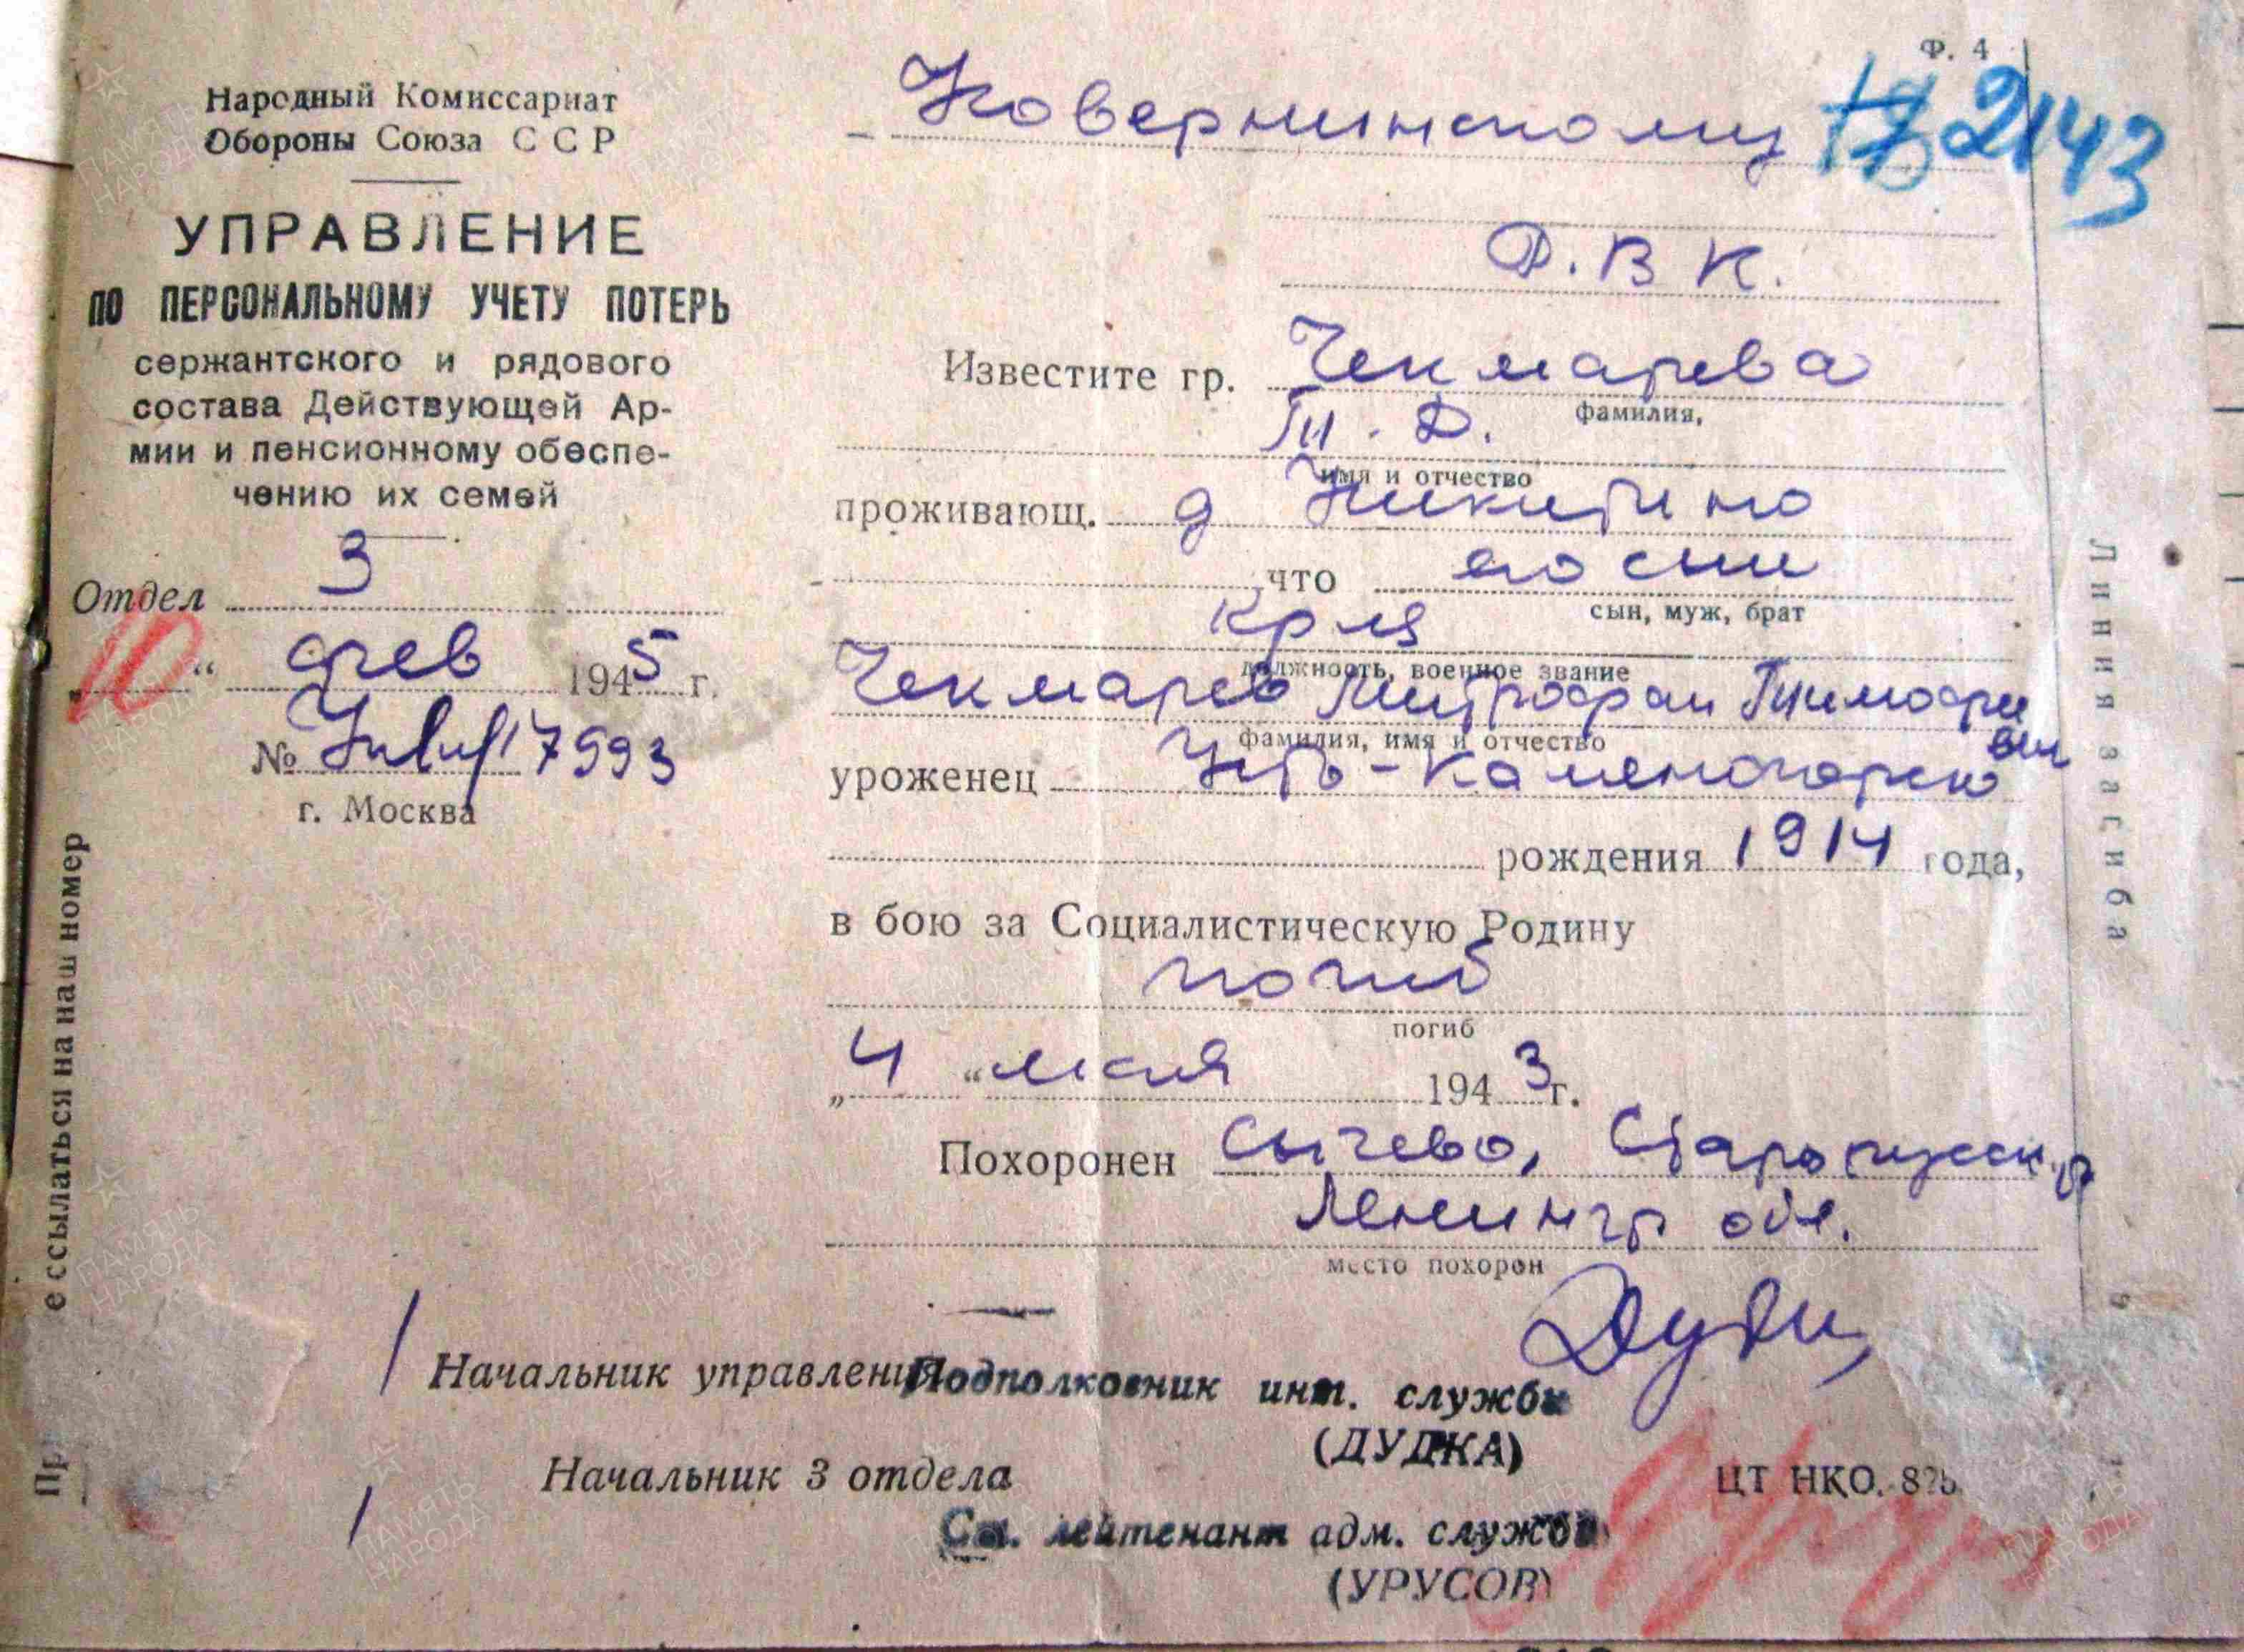 Ф. 4
Народный Комиссариат
Обороны Союза ССР
УПРАВЛЕНИЕ
ПО ПЕРСОНАЛЬНОМУ УЧЕТУ ПОТЕРЬ
сержантского и рядового
состава Действующей Ар-
мии и пенсионному обеспе-
чению их семей
Отдел 3
„10“ фев 1945 г.
№ 7993
г. Москва
е ссылаться на наш номер
Ковернинскому
2143
Р.В.К.
Известите гр. Чекмарева
фамилия,
Т. Д.
имя и отчество
проживающ. д Никитино
что его сын
сын, муж, брат
кр-ц
должность, военное звание
Чекмарев Митрофан Тимофее
вич
фамилия, имя и отчество
уроженец Усть-Каменогорск
рождения 1914 года,
в бою за Социалистическую Родину
погиб
погиб
„4“ мая 1943 г.
Похоронен Сычево, Старорусск. р
Ленингр обл.
место похорон
Начальник управления Подполковник инт. службы
(ДУДКА)
Начальник 3 отдела
Ст. лейтенант адм. службы
(УРУСОВ)
ЦТ НКО. 875
Линия загиба
ПАМЯТЬ
НАРОДА